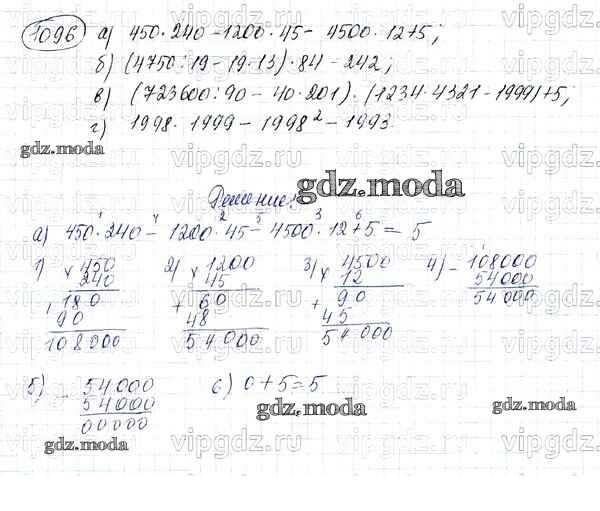 1096 а) 450·240-1200·45-4500·12+5;
б) (4750:19-19·13)·84-242;
в) (723600:90-40·201)·(1234·4321-1999)+5;
г) 1998·1999-1998²-1993.
gdz.moda
Решение:
gdz.moda
а) 450·240-1200·45-4500·12+5=5
1 4 2 5 3 6
1) × 450
240
180
+ 90
108000
2) × 1200
45
+ 60
48
54000
3) × 4500
12
+ 90
45
54000
4) - 108000
54000
54000
5) - 54000
54000
00000
6) 0+5=5
gdz.moda
gdz.moda
gdz.moda
vipgdz.ru